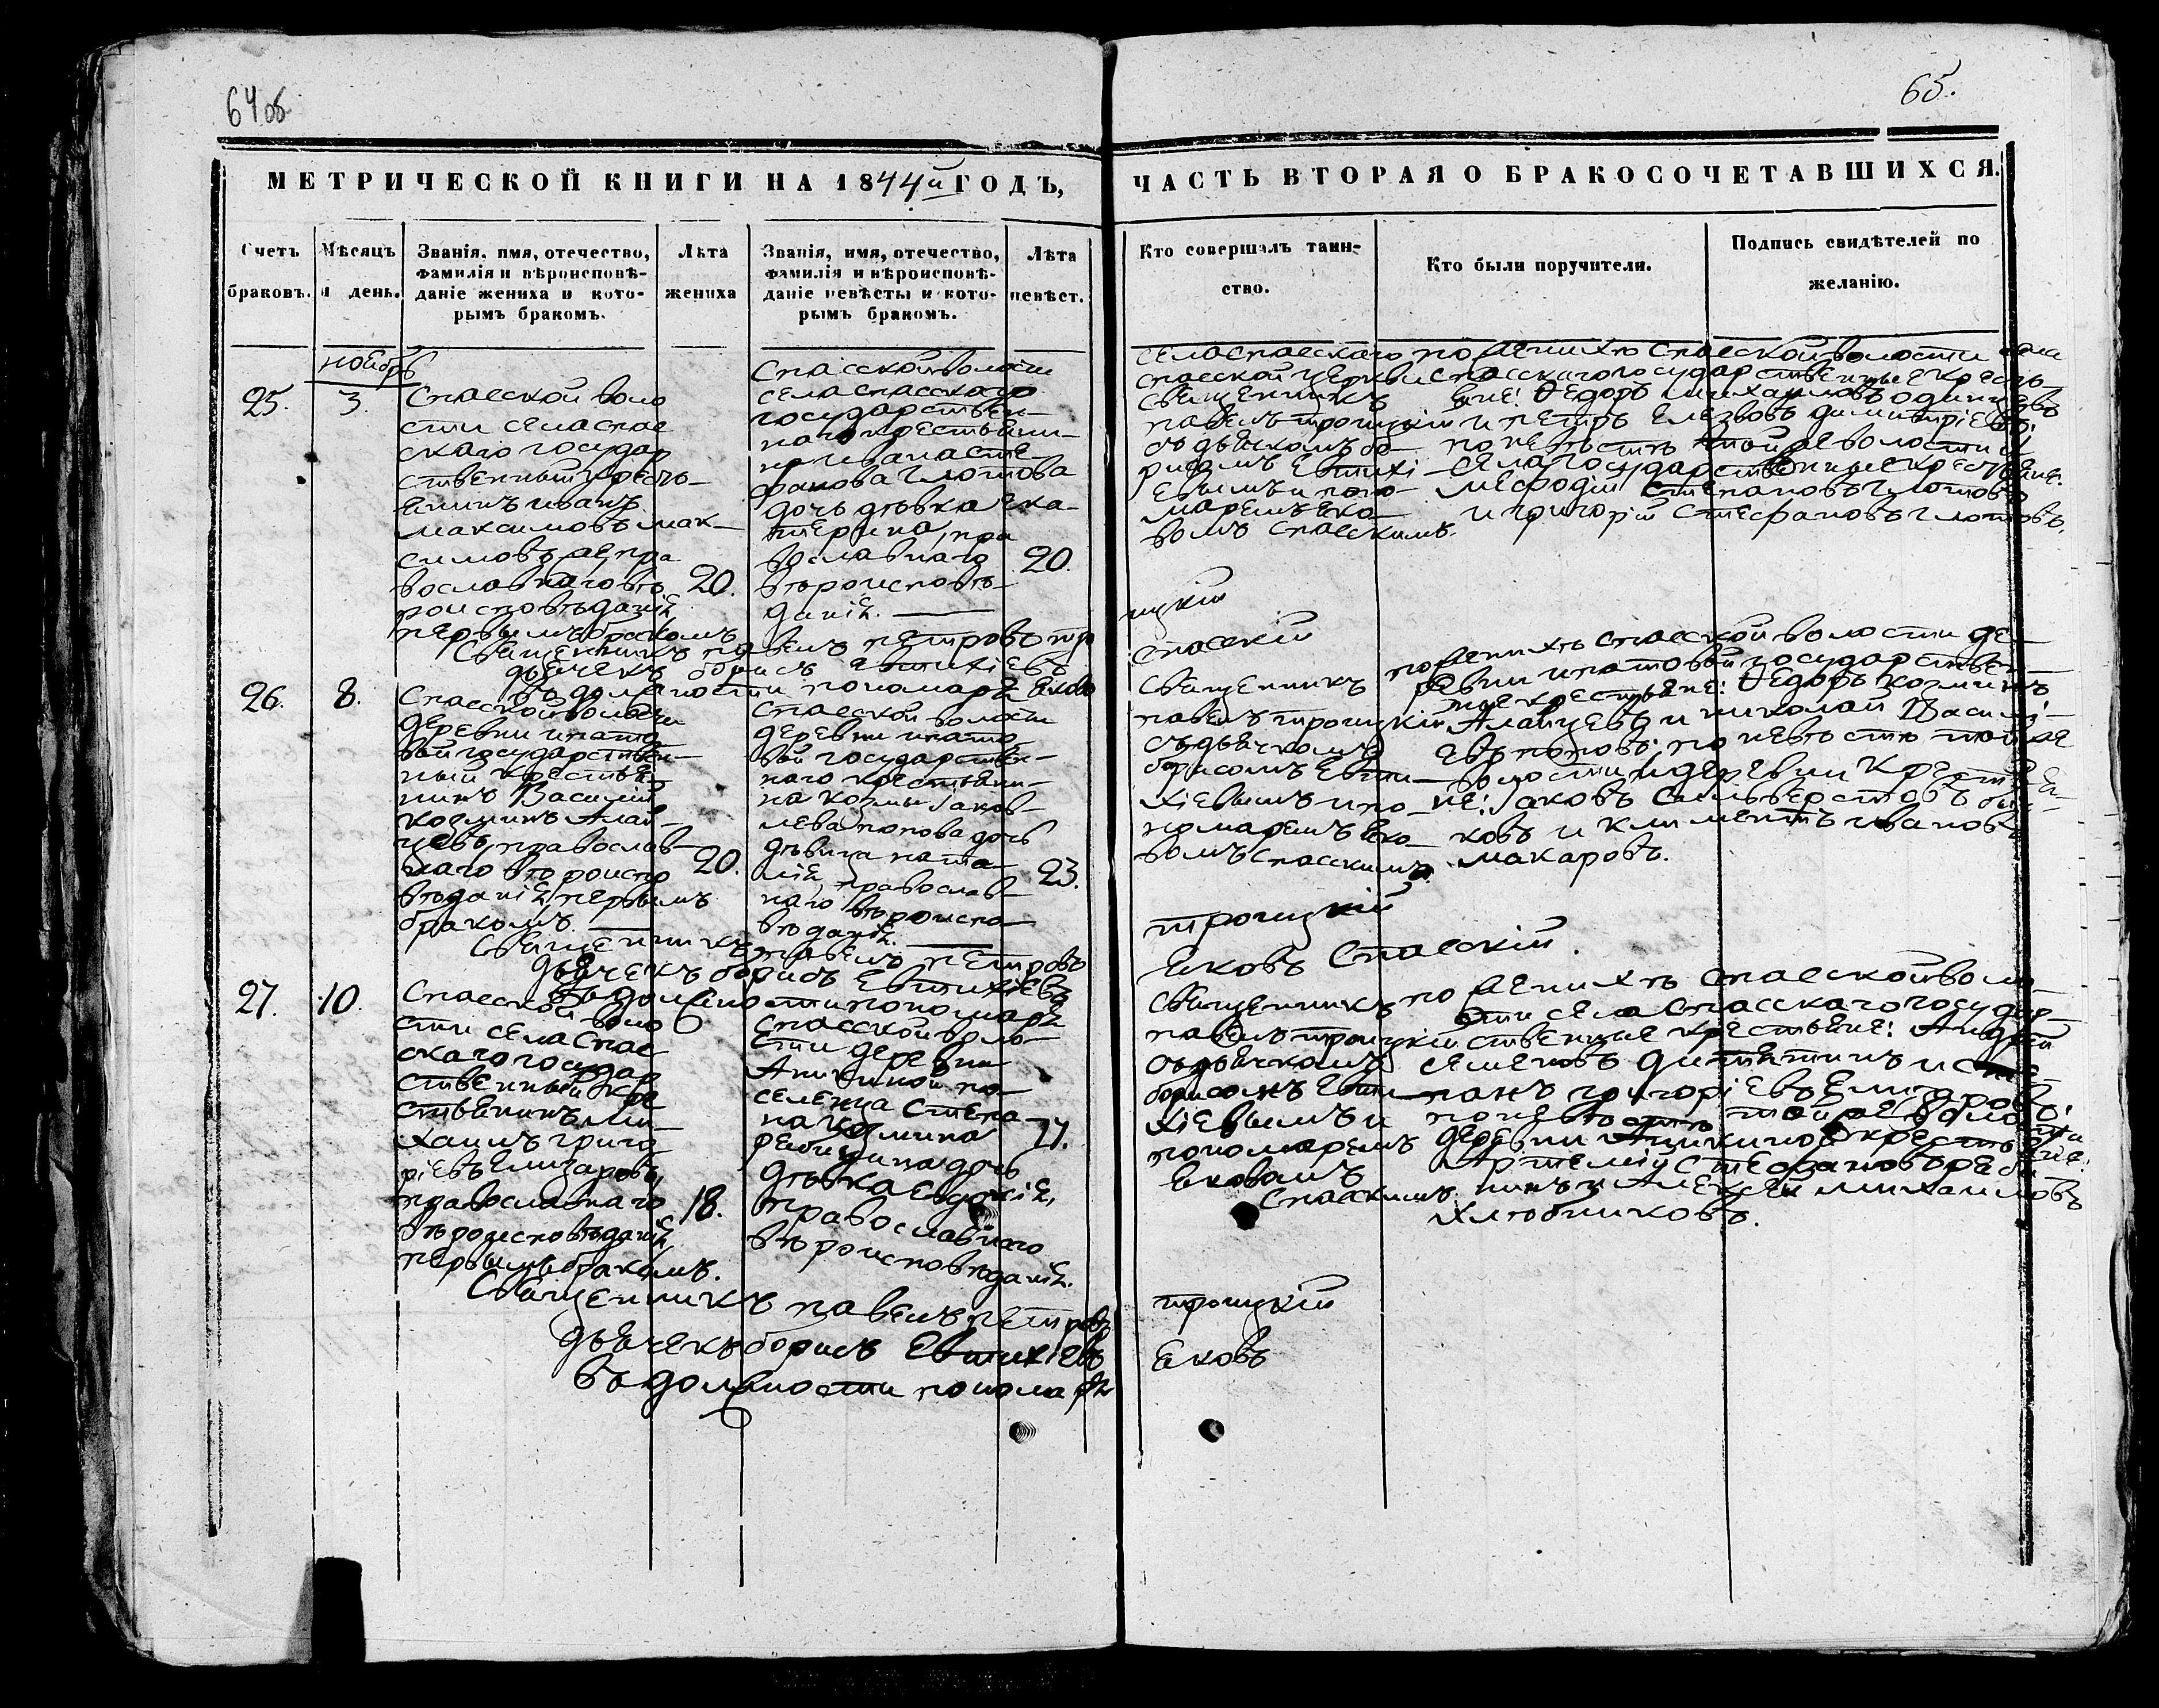 64об
65.
МЕТРИЧЕСКОЙ КНИГИ НА 1844й ГОДЪ,
ЧАСТЬ ВТОРАЯ О БРАКОСОЧЕТАВШИХСЯ.
Счетъ браковъ.
Мѣсяцъ и день.
Званія, имя, отечество,
фамилія и вѣроисповѣ-
даніе жениха и кото-
рымъ бракомъ.
Лѣта
жениха
Званія, имя, отечество,
фамилія и вѣроисповѣ-
даніе невѣсты и кото-
рымъ бракомъ.
Лѣта
невѣст.
Кто совершалъ таин-
ство.
Кто были поручители.
Подпись свидѣтелей по
желанію.
ноября
25.
3.
Спасской воло
сти села Спас
скаго государ
ственный кресть-
янинъ иванъ
максимовъ мак-
симовъ же, пра
вославнаго вѣ
роисповѣданія
первымъ бракомъ
20.
Спасской волости
села спасскаго
государствен-
наго крестьяни-
на ивана сте-
фанова глотова
дочь дѣвка ека-
терина, пра
вославнаго
вѣроисповѣ-
данія.
20.
села спаскаго
спасской церкви
священникъ
павелъ троицкій
съ дьячкомъ бо-
рисомъ Евтихі-
евымъ и поно-
маремъ Яко-
вомъ спасскимъ.
по женихѣ спасской волости села
спасскаго государственные кресть-
яне: Ѳедоръ михаиловъ одинцовъ
и петръ Елезовъ димитріевъ;
по невѣстѣ той же волости и
села государственные крестьяне:
Мефодій Степановъ глотовъ
и григорій Стефановъ глотовъ.
Священникъ павелъ петровъ тро
ицкій
дьячекъ борисъ Евтихіевъ
въ должности пономаря яковъ
спасскій
26.
8.
Спасской волости
деревни ипато
вой государствен-
ный крестья-
нинъ Василій
козминъ Алай-
цевъ, православ-
наго вѣроиспо
вѣданія, первымъ
бракомъ.
20.
Спасской волости
деревни ипато
вой государствен-
наго крестьяни-
на козмы Іаков-
лева попова дочь
дѣвица ната-
лія, православ-
наго вѣроиспо-
вѣданія.
23.
Священникъ
павелъ троицкій
съ дьячкомъ
борисомъ Евти-
хіевымъ и по-
номаремъ Яко-
вомъ спасскимъ.
по женихѣ спасской волости де-
ревни ипатовой государствен-
ные крестьяне: Ѳедоръ козминъ
Алайцевъ и николай Василі-
евъ поповъ; по невѣстѣ той же
волости и деревни крестья-
не: Іаковъ Сильверстовъ
и климентъ ивановъ
макаровъ.
Священникъ павелъ петровъ
троицкій
дьячекъ борисъ Евтихіевъ
въ должности пономаря
яковъ Спасскій.
27.
10.
Спасской воло
сти села Спас
скаго государ
ственный кре
стьянинъ Ми-
хаилъ григо
ріевъ Елизаровъ,
православнаго
вѣроисповѣданія,
первымъ бракомъ.
18.
Спасской воло-
сти деревни
Аникиной по-
селенца степа
на козмина
рябинина дочь
дѣвка евдокія,
православнаго
вѣроисповѣданія.
21.
Священникъ
павелъ троицкій
съ дьячкомъ
борисомъ Евти-
хіевымъ и
пономаремъ
яковомъ
Спасскимъ.
по женихѣ спасской воло-
сти села спасскаго государ
ственные крестьяне: Андрей
семеновъ дитятинъ и сте-
панъ григоріевъ Елизаровъ;
по невѣстѣ той же волости
деревни Аникиной крестьяне:
Артемій Стефановъ ряби
нинъ и Алексѣй михаиловъ
хлюбниковъ.
Священникъ павелъ петровъ
троицкій
дьячекъ борисъ Евтихіевъ
въ должности пономаря
яковъ